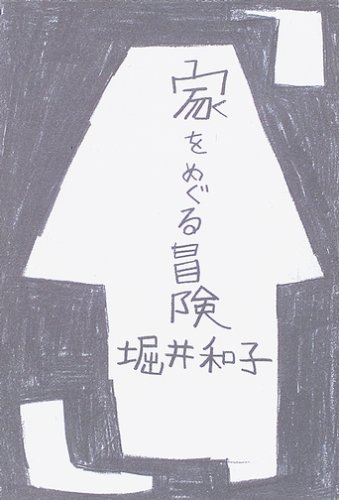 家をめぐる冒険
堀井和子